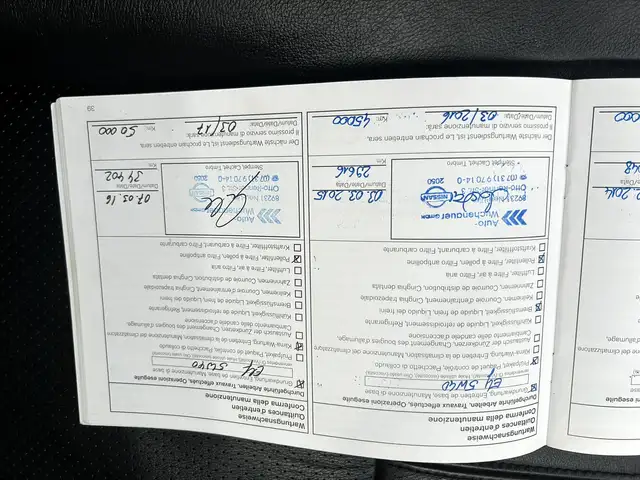 Wartungsnachweise
Quittances d'entretien
Conferma della manutenzione
Durchgeführte Arbeiten, Travaux effectués, Operazioni eseguite
Grundwartung, Entretien de base, Manutenzione di base
E4 5W40
Protpaket, Paquet de contrôle, Pacchetto di controllo
Klima-Wartung, Entretien de la climatisation, Manutenzione del climatizzatore
Austausch der Zündkerzen, Changement des bougies d'allumage,
Cambiamento delle candele d'accensione
Kühlflüssigkeit, Liquide de refroidissement, Refrigerante
Bremsflüssigkeit, Liquide de frein, Liquido dei freni
Keilriemen, Courroie d'entraînement, Cinghia trapezoidale
Zahnriemen, Courroie de distribution, Cinghia dentata
Luftfilter, Filtre à air, Filtro aria
Pollenfilter, Filtre à pollen, Filtro antipolline
Kraftstofffilter, Filtre à carburant, Filtro carburante
Auto-
Wuchenauer GmbH
Otto-Renner-Str. 3
NISSAN
2050
Stempel, Cachet, Timbro
03.03.2015
Datum/Date/Data:
29616
Km:
Der nächste Wartungsdienst ist, Le prochain entretien sera,
Il prossimo servizio di manutenzione sarà:
03/2016
Datum/Date/Data:
45000
Km:
Wartungsnachweise
Quittances d'entretien
Conferma della manutenzione
Durchgeführte Arbeiten, Travaux effectués, Operazioni eseguite
Grundwartung, Entretien de base, Manutenzione di base
E4 5W40
Klima-Wartung, Entretien de la climatisation, Manutenzione del climatizzatore
Austausch der Zündkerzen, Changement des bougies d'allumage,
Cambiamento delle candele d'accensione
Kühlflüssigkeit, Liquide de refroidissement, Refrigerante
Bremsflüssigkeit, Liquide de frein, Liquido dei freni
Keilriemen, Courroie d'entraînement, Cinghia trapezoidale
Zahnriemen, Courroie de distribution, Cinghia dentata
Luftfilter, Filtre à air, Filtro aria
Pollenfilter, Filtre à pollen, Filtro antipolline
Kraftstofffilter, Filtre à carburant, Filtro carburante
Auto-
Wuchenauer GmbH
Otto-Renner-Str. 3
NISSAN
2050
Stempel, Cachet, Timbro
Datum/Date/Data:
34402
Km:
Der nächste Wartungsdienst ist, Le prochain entretien sera,
Il prossimo servizio di manutenzione sarà:
03/17
Datum/Date/Data:
50 000
Km:
39